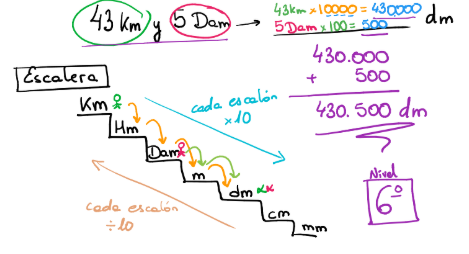 43 Km y 5 Dam → 43km × 10000 = 430000 dm
5 Dam × 100 = 500
430.000
+ 500
430.500 dm
Escalera
Km
Hm
Dam
m
dm
cm
mm
cada escalón
×10
cada escalón
÷10
Nivel
6º